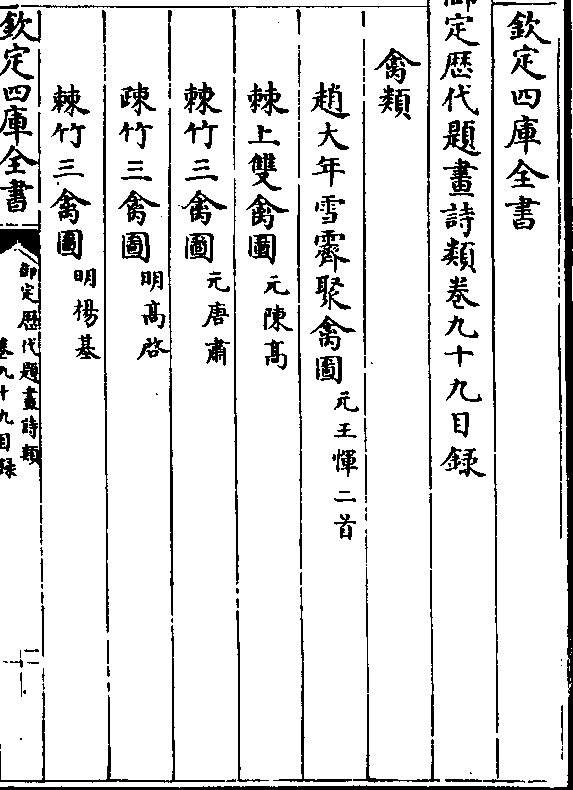 欽定四庫全書
御定歴代題畫詩類卷九十九目録
禽類
趙大年雪霽聚禽圖 元王惲二首
棘上雙禽圖 元陳高
棘竹三禽圖 元唐肅
疎竹三禽圖 明高啓
棘竹三禽圖 明楊基
欽定四庫全書
御定歴代題畫詩類
卷九十九目録